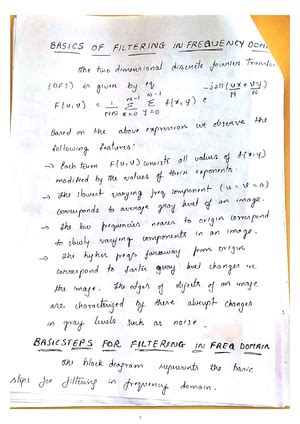 BASICS OF FILTERING IN FREQUENCY DOMAIN
The two dimensional discrete fourier Transform
(DFT) is given by eq
F(u,v) = 1/MN Σ x=0 M-1 Σ y=0 N-1 f(x,y) e -j2π(ux/M + vy/N)
Based on the above expression we observe the
following features:
→ Each term F(u,v) consists all values of f(x,y)
modified by the values of their exponents.
→ The slowest varying freq component (u=v=0)
corresponds to average gray level of an image.
→ The low frequencies nearer to origin correspond
to slowly varying components in an image.
→ The higher freqs faraway from origin
correspond to faster gray level changes in
the image. The edges of objects of an image
are characterized by these abrupt changes
in gray levels such as noise.
BASIC STEPS FOR FILTERING IN FREQ DOMAIN
The block diagram represents the basic
steps for filtering in frequency domain.
1